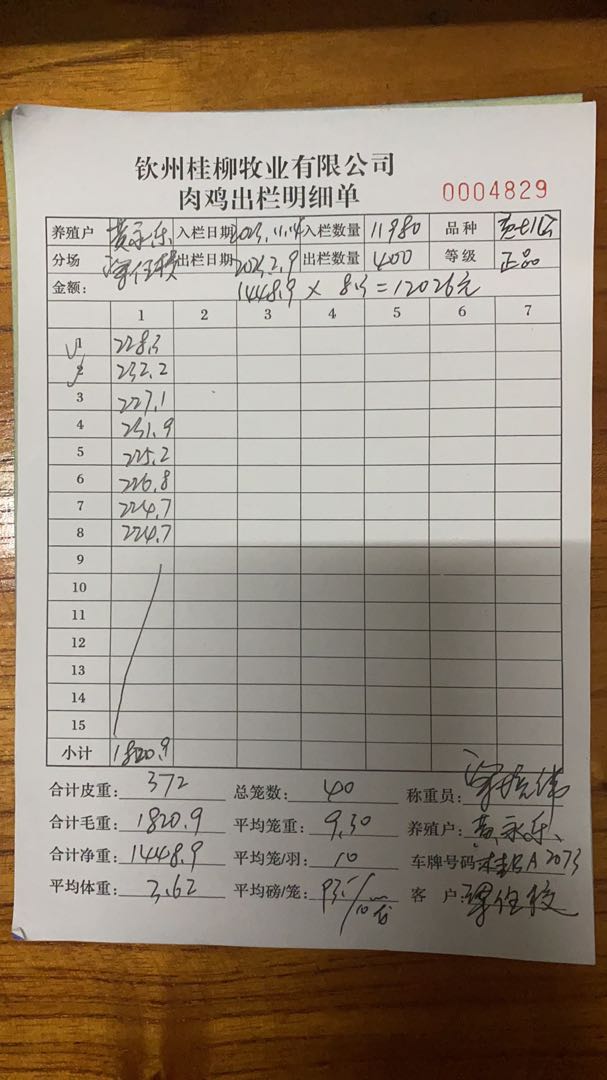 钦州桂柳牧业有限公司
肉鸡出栏明细单 0004829
养殖户 黄永乐 入栏日期 入栏数量 11980 品种
分场 出栏日期 出栏数量 400 等级 正品
金额: 1448.9 × 8.3 = 12026元
1 2 3 4 5 6 7
1 228.3
2 232.2
3 227.1
4 231.9
5 225.2
6 226.8
7 224.7
8 224.7
9
10
11
12
13
14
15
小计 1820.9
合计皮重: 372 总笼数: 40 称重员:
合计毛重: 1820.9 平均笼重: 9.30 养殖户: 黄永乐
合计净重: 1448.9 平均笼/羽: 10 车牌号码 A2073
平均体重: 3.62 平均磅/笼: 客 户: